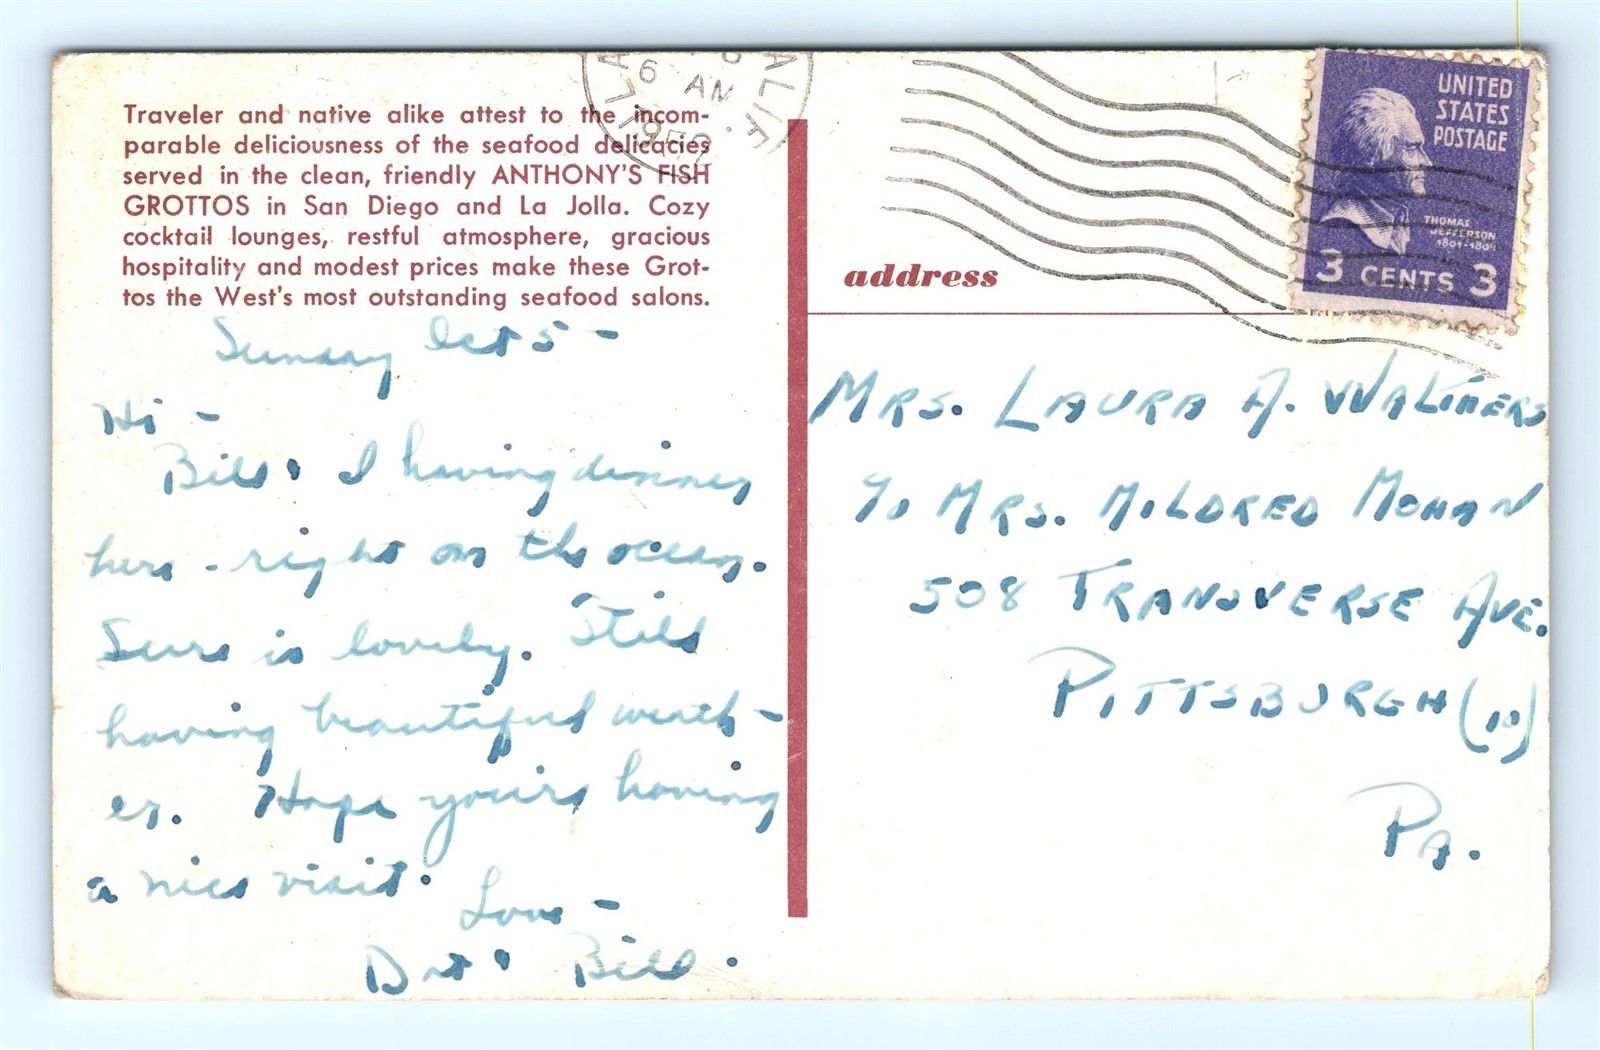 Traveler and native alike attest to the incom-
parable deliciousness of the seafood delicacies
served in the clean, friendly ANTHONY'S FISH
GROTTOS in San Diego and La Jolla. Cozy
cocktail lounges, restful atmosphere, gracious
hospitality and modest prices make these Grot-
tos the West's most outstanding seafood salons.
Sunday Oct 5 -
Hi -
Bill & I having dinner
here - right on the ocean.
Sure is lovely. Still
having beautiful weath-
er. Hope you're having
a nice visit.
Love -
Dot & Bill.
6
AM
1952
ALIF.
UNITED
STATES
POSTAGE
THOMAS
JEFFERSON
1801-1809
3 CENTS 3
address
MRS. LAURA A. WALTHERS
c/o MRS. MILDRED MOHAN
508 TRANSVERSE AVE.
PITTSBURGH (10)
PA.